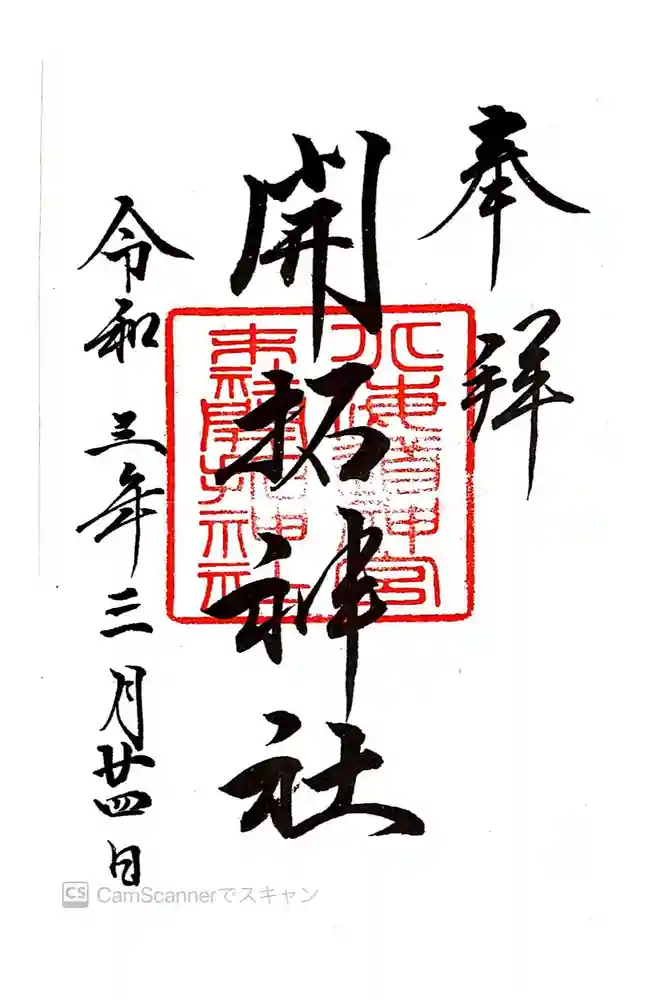 奉拜
開拓神社
北海道神宮
末社開拓神社
令和三年三月廿四日
CS CamScannerでスキャン